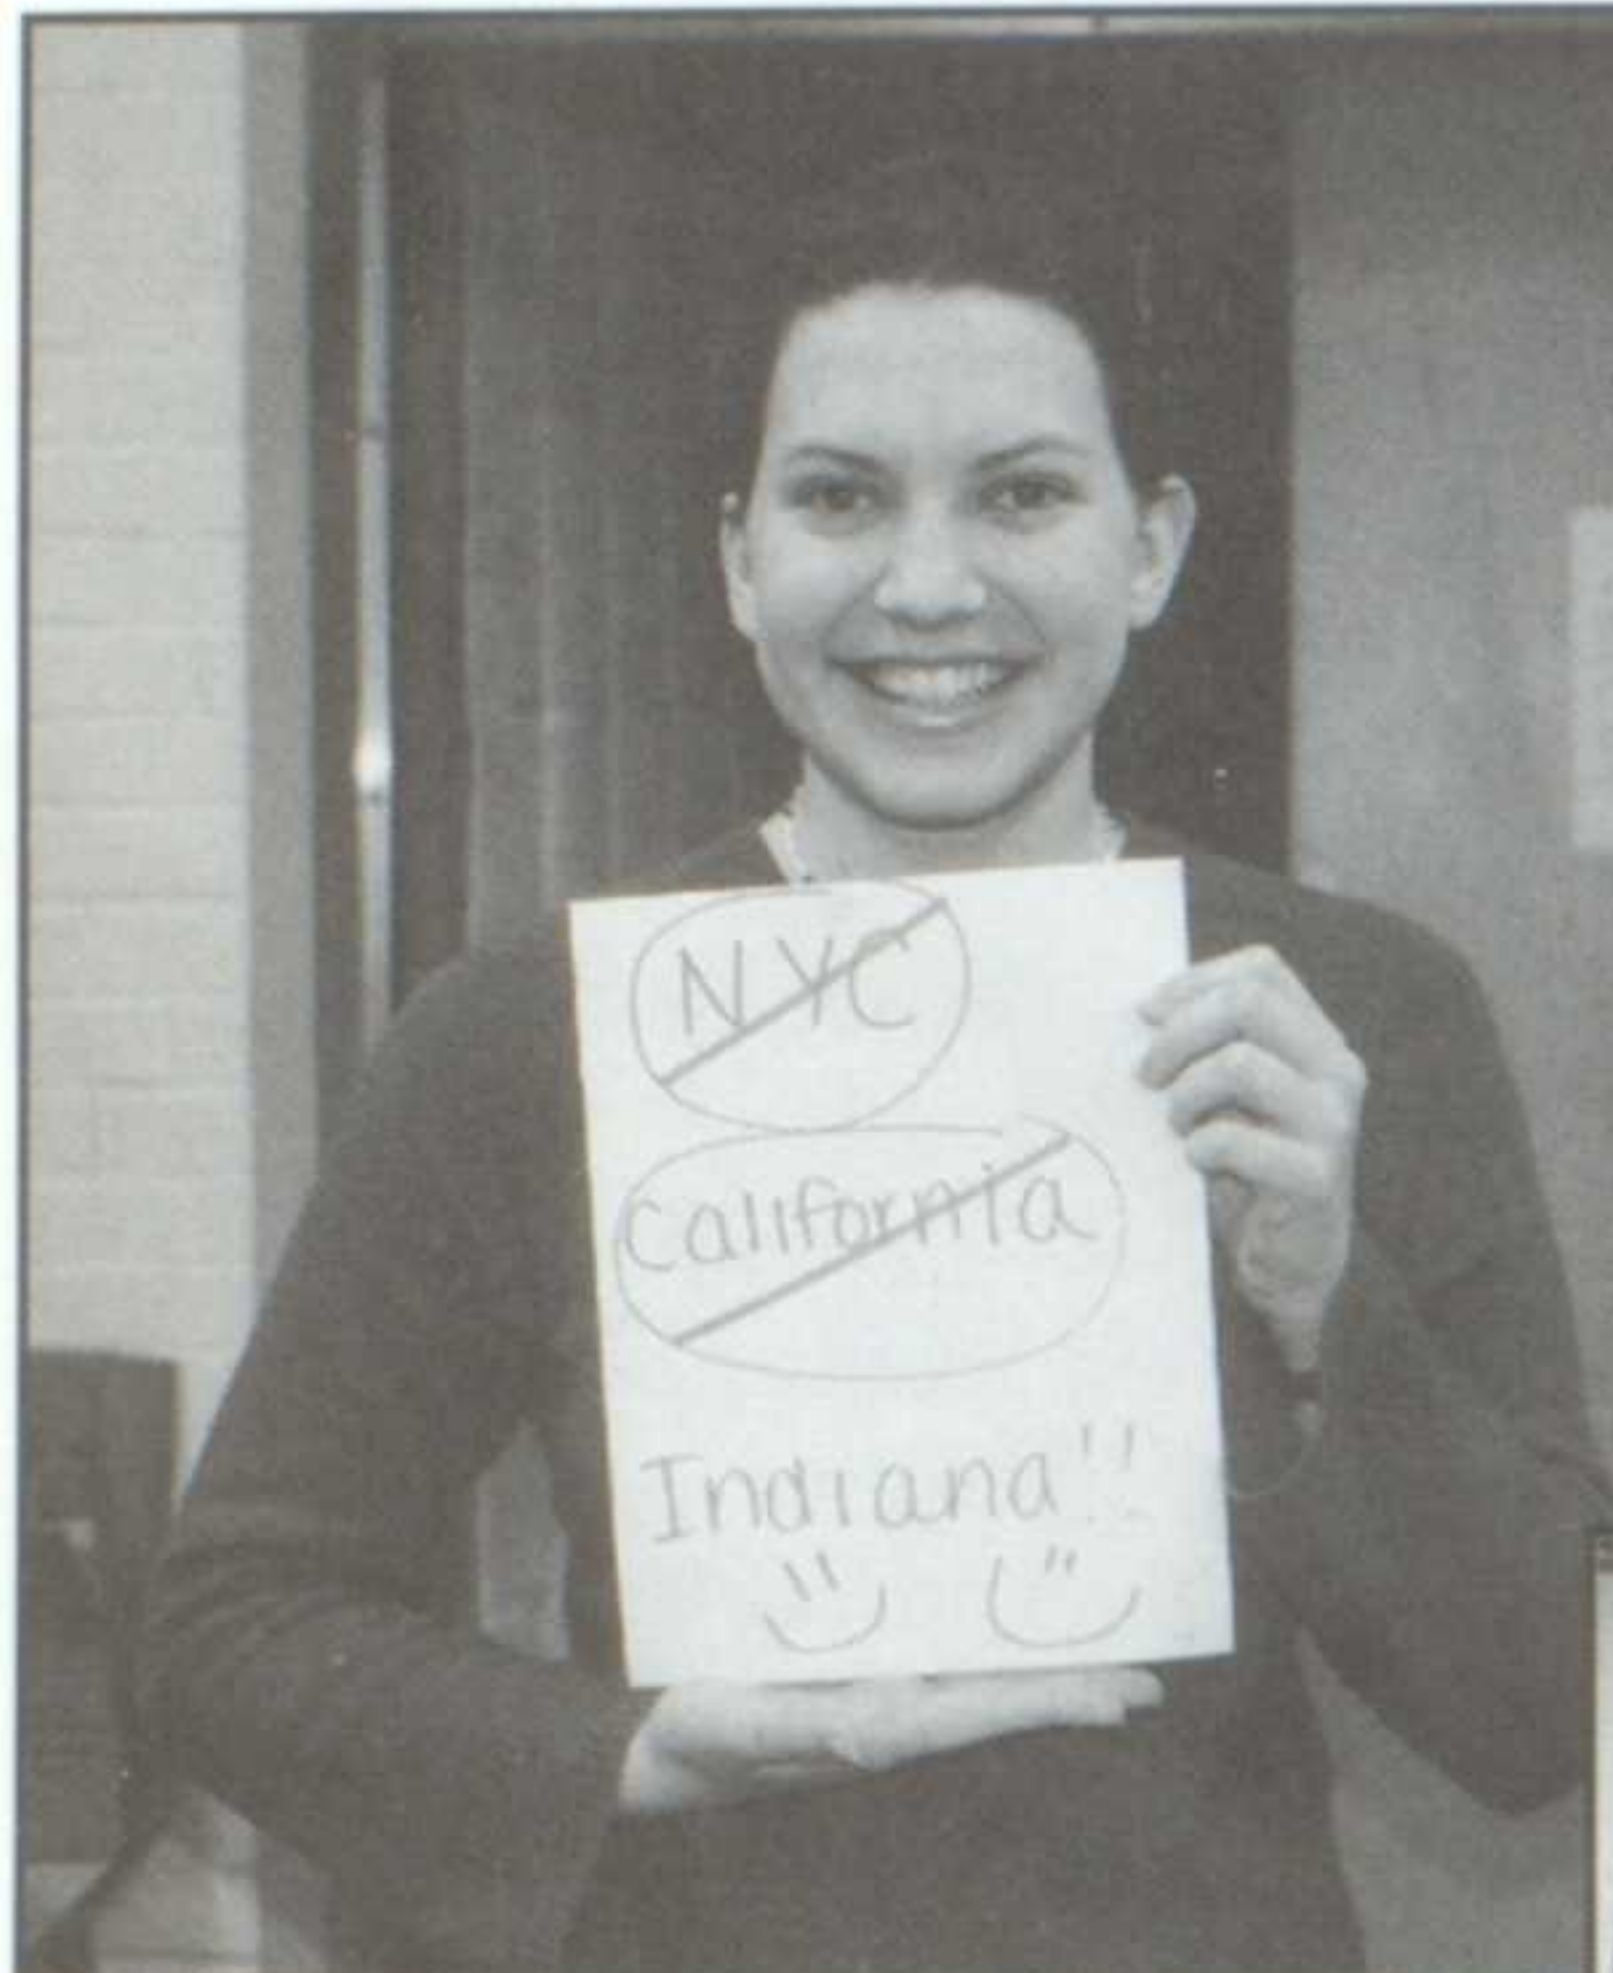 NYC
California
Indiana!!